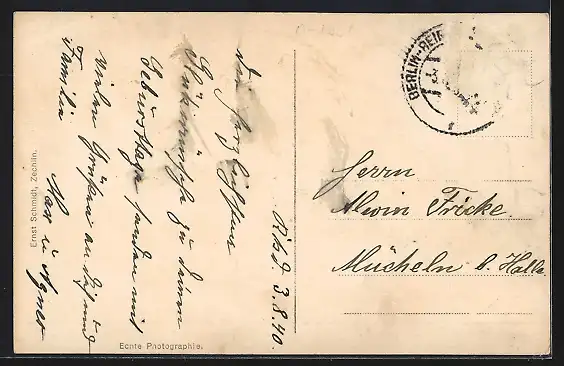 Rhd. 3.8.40
Die herzlichsten
Glückwünsche zu deinem
Geburtstage senden mit
vielen Grüßen an dich und
Familie
Max u. Agnes
Herrn
Alwin Fricke.
Mücheln b. Halle
BERLIN-REI
Ernst Schmidt, Zechlin.
Echte Photographie.